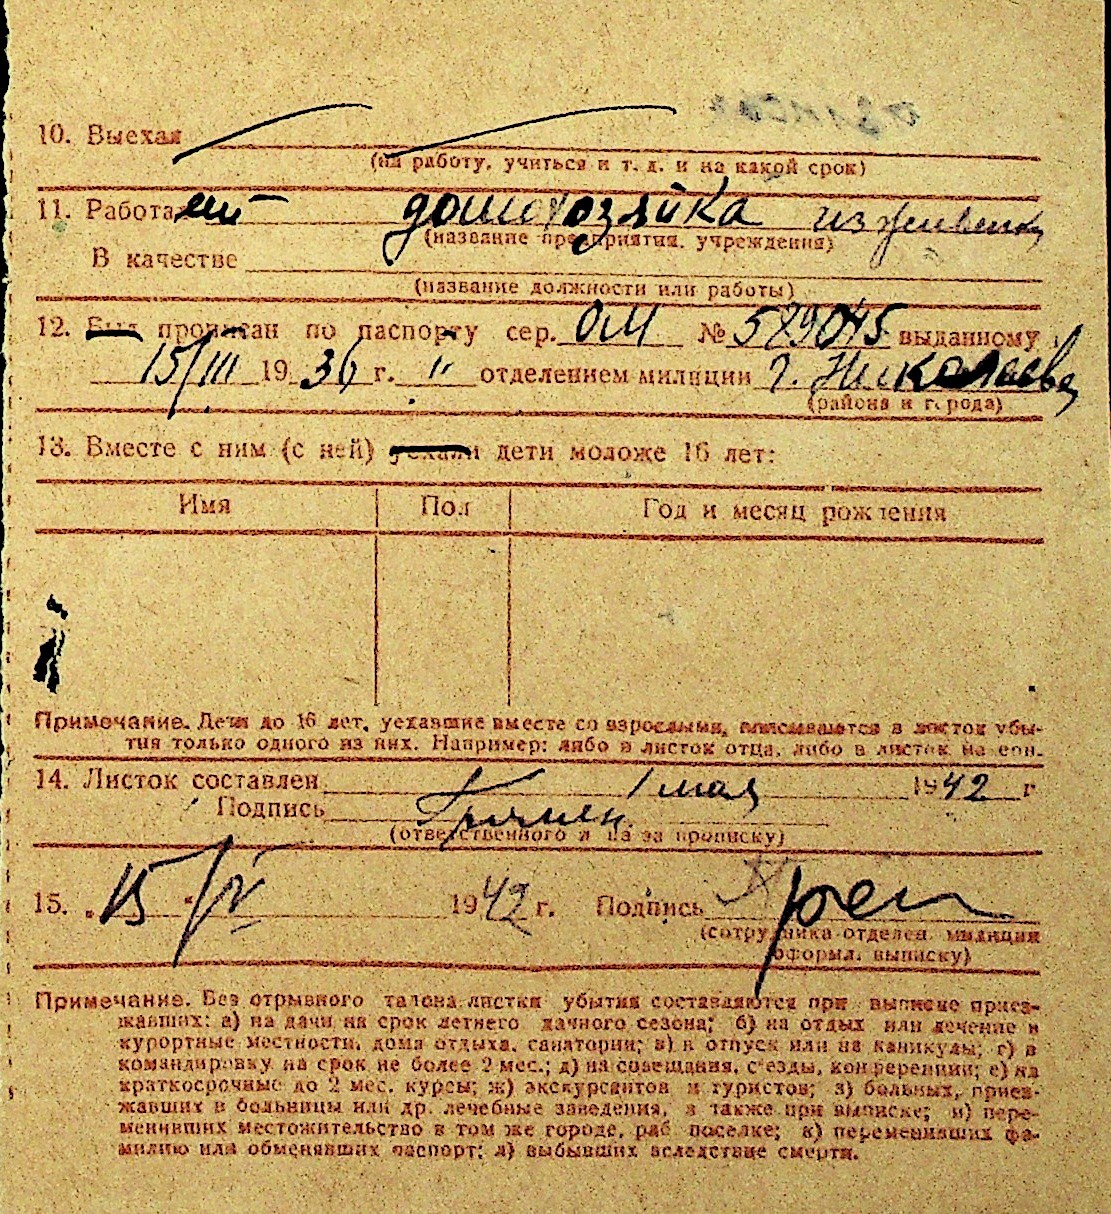 10. Выехал
(на работу, учиться и т. д. и на какой срок)
11. Работает домохозяйка иждивенка
(название предприятия, учреждения)
В качестве
(название должности или работы)
12. Был прописан по паспорту сер. ОМ № 529045 выданному
15/III 1936 г. " отделением милиции г. Николаева
(района и города)
13. Вместе с ним (с ней) уехали дети моложе 16 лет:
Имя Пол Год и месяц рождения
Примечание. Дети до 16 лет, уехавшие вместе со взрослыми, вписываются в листок убы-
тия только одного из них. Например: либо в листок отца, либо в листок матери.
14. Листок составлен 1 мая 1942 г
Подпись
(ответственного лица за прописку)
15. „15“ IV 1942 г. Подпись
(сотрудника отделен. милиции
оформл. выписку)
Примечание. Без отрывного талона листки убытия составляются при выписке приез-
жавших: а) на дачи на срок летнего дачного сезона; б) на отдых или лечение в
курортные местности, дома отдыха, санатории; в) в отпуск или на каникулы; г) в
командировку на срок не более 2 мес.; д) на совещания, с'езды, конференции; е) на
краткосрочные до 2 мес. курсы; ж) экскурсантов и туристов; з) больных, приез-
жавших в больницы или др. лечебные заведения, а также при выписке; и) пере-
менивших местожительство в том же городе, раб поселке; к) переменивших фа-
милию или обменявших паспорт; л) выбывших вследствие смерти.